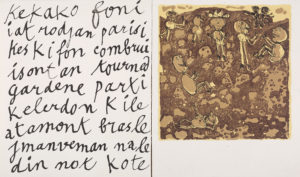 kekako foni
iat rodjan parisi
kes kifon combrui
isontan tournad
gardene parti
kelerdon kile
atamont brasle
jmanveman nale
din not kote